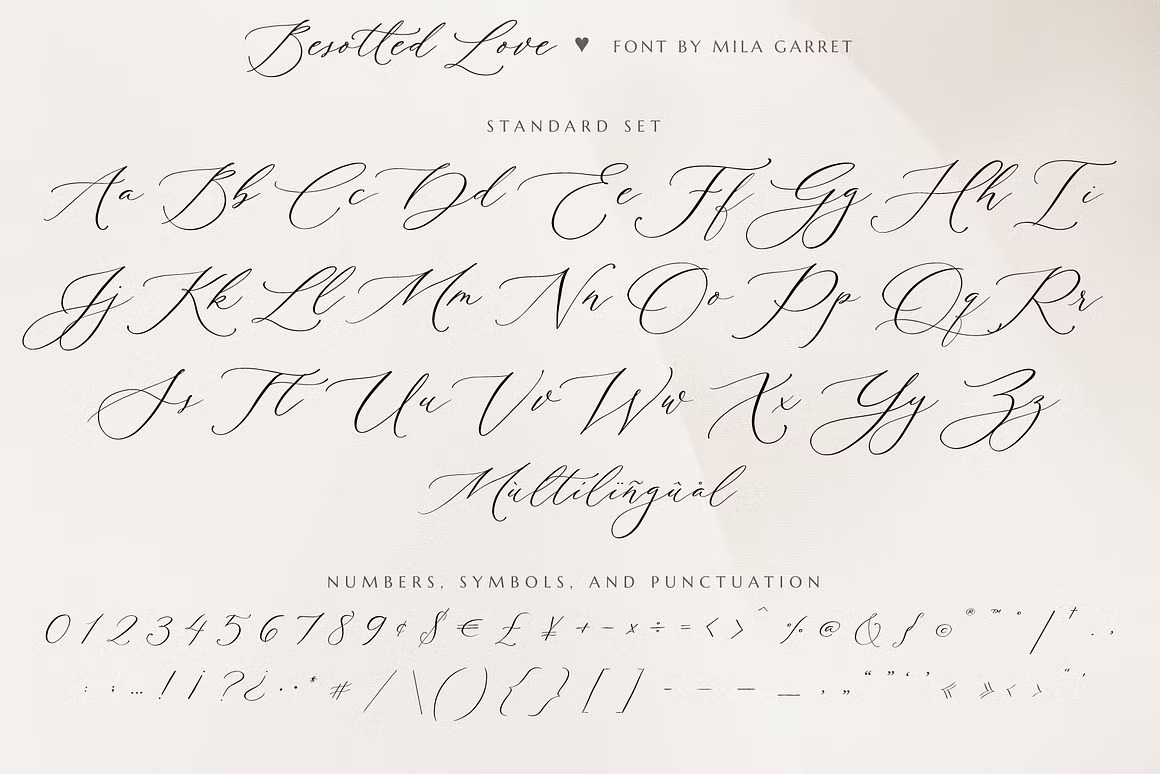 Besotted Love ♥ FONT BY MILA GARRET
STANDARD SET
Aa Bb Cc Dd Ee Ff Gg Hh Ii
Jj Kk Ll Mm Nn Oo Pp Qq Rr
Ss Tt Uu Vv Ww Xx Yy Zz
Mùltilïñgûål
NUMBERS, SYMBOLS, AND PUNCTUATION
0 1 2 3 4 5 6 7 8 9 ¢ $ € £ ¥ + − × ÷ = < > ^ % @ & ƒ © ® ™ ° | † . ,
: ; … ! ¡ ? ¿ · • * # / \ ( ) { } [ ] - – — _ ‚ „ “ ” ‘ ’ « » ‹ › " '